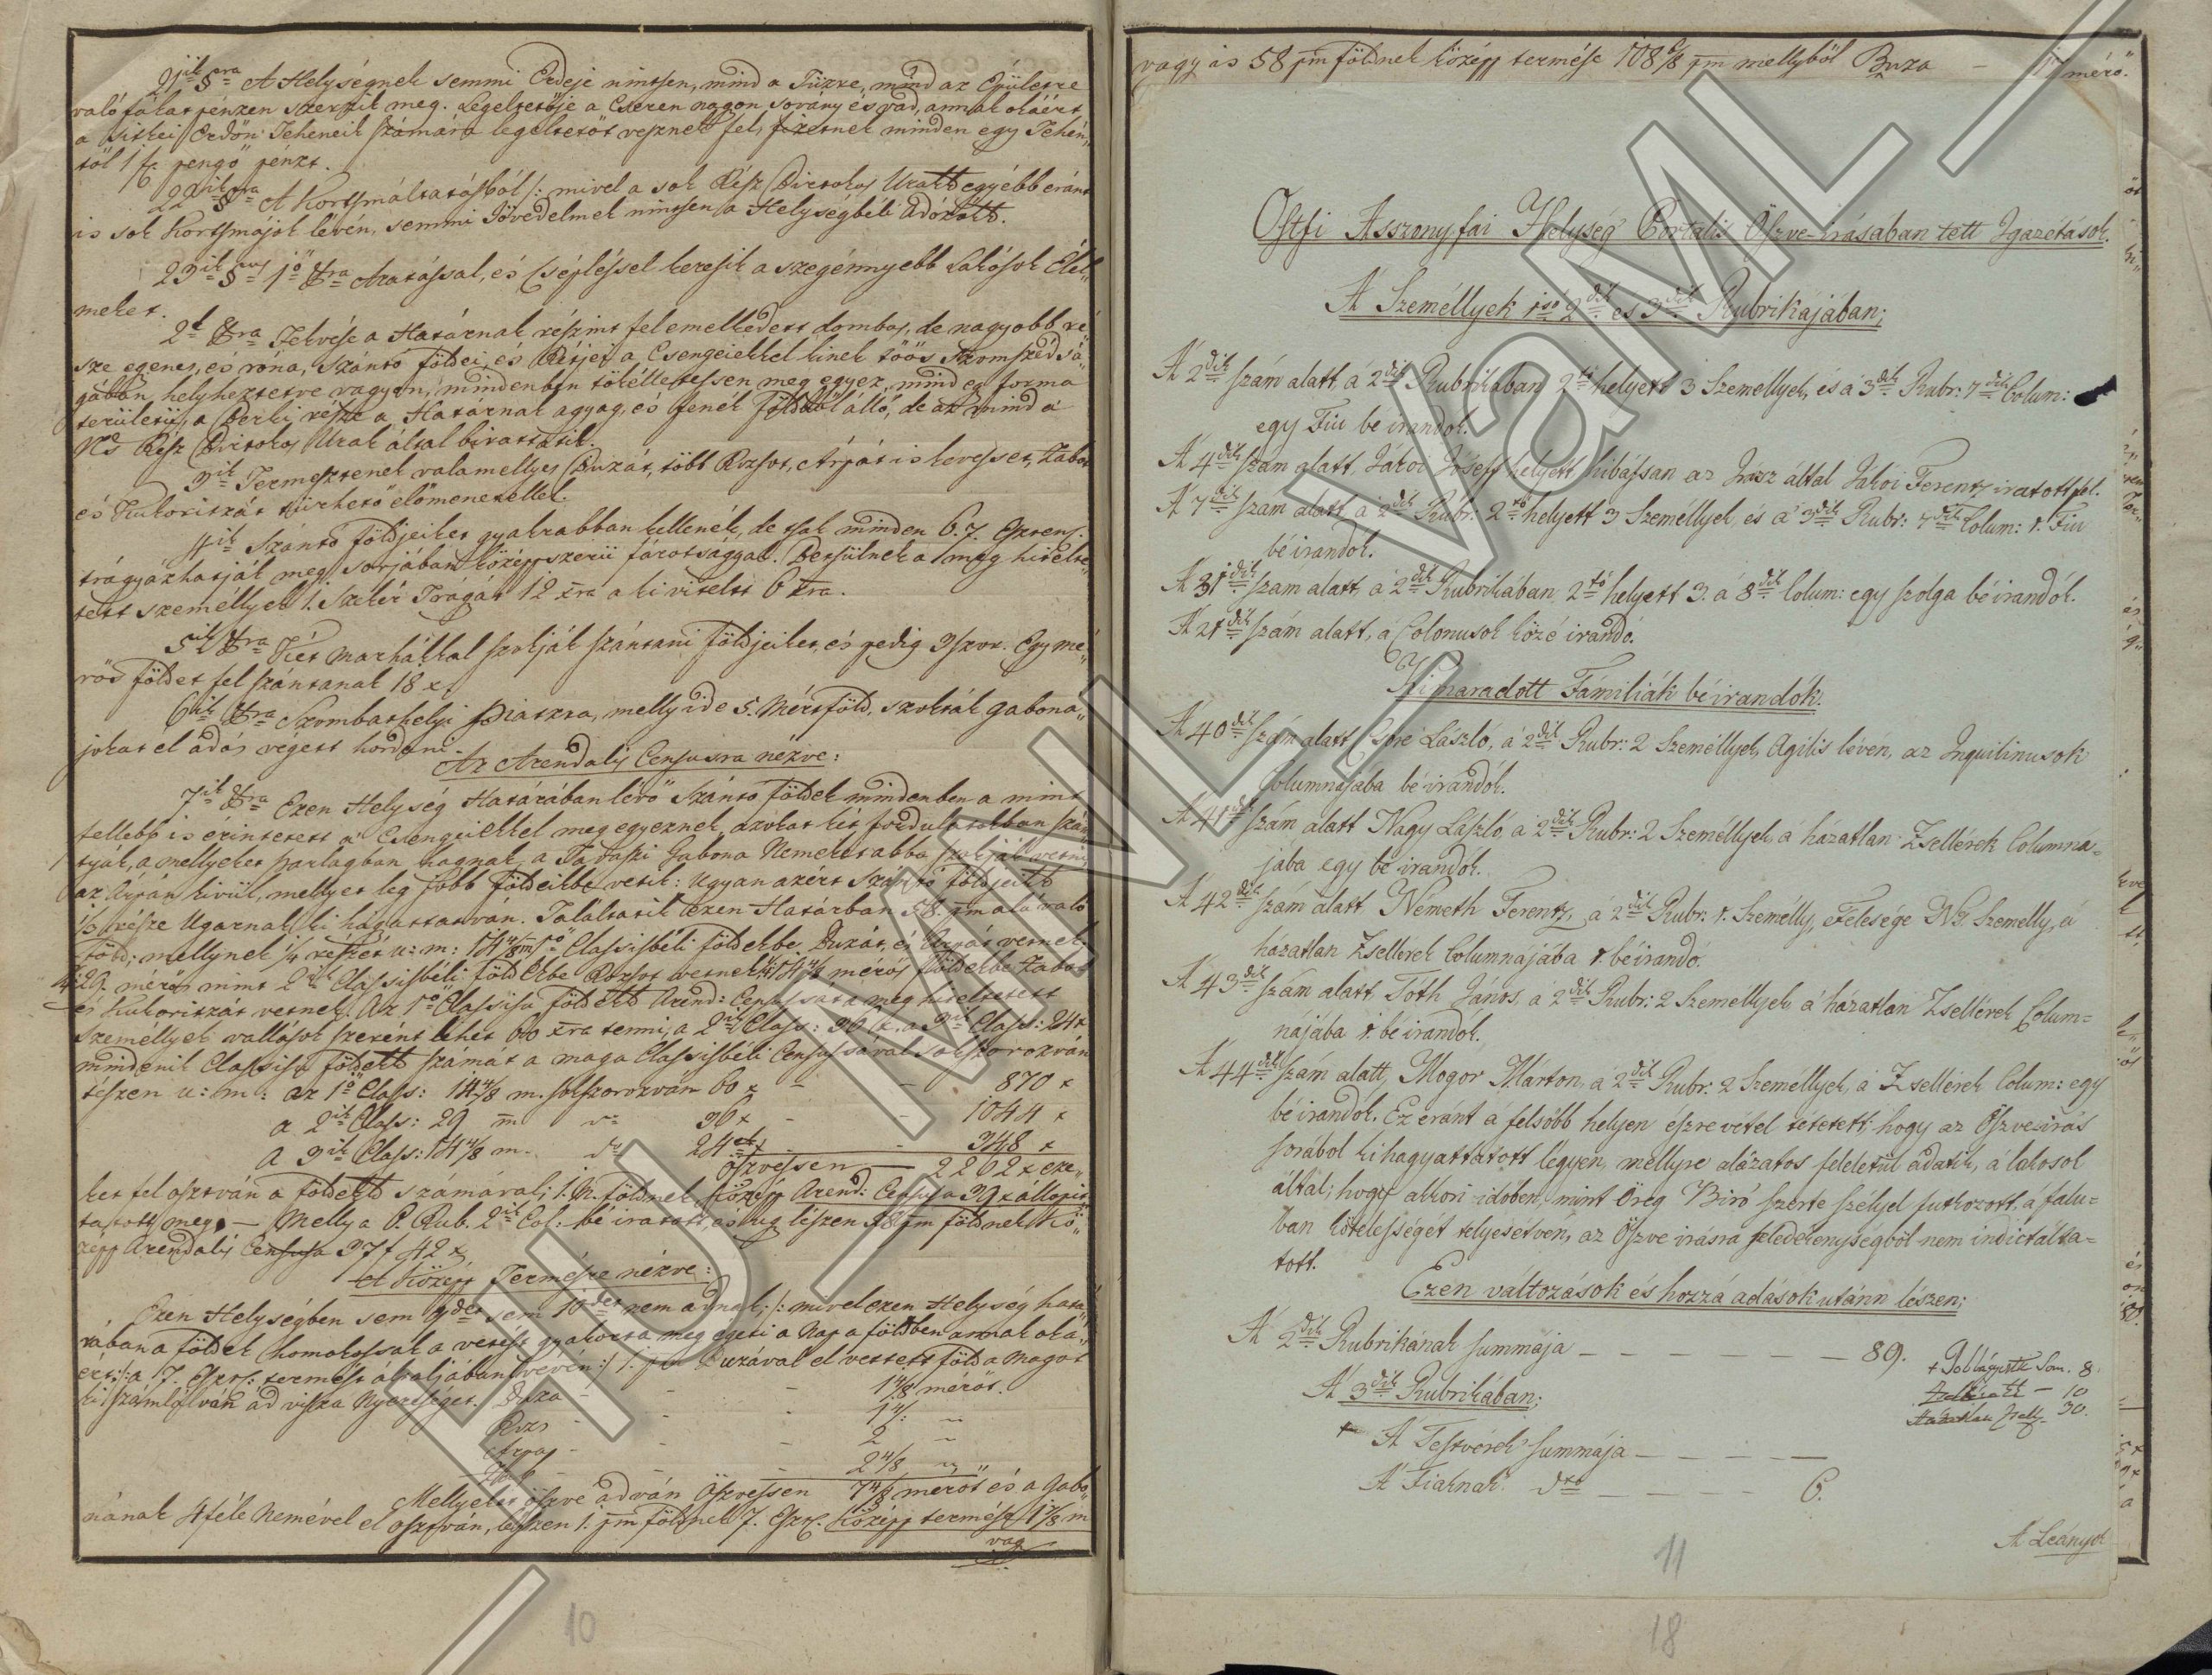 21ik §ra A Helységnek semmi Erdeje nintsen, mind a Tüzre, mind az Épületre
való fákat pénzen szerzik meg. Legeltetője a Cseren nagyon sovány és vad, annak okáért
a Sitkei Erdőn Teheneik számára legeltetőt vesznek fel, fizetnek minden egy Tehén„
től 1 f. pengő pénzt.
22ik §ra A Kortsmáltatásból /: mivel a sok Rész Birtokos Uraktt egyébb eránt
is sok Kortsmájok lévén, semmi Jövedelmek nintsen a Helységbéli Adózóktt.
23ik §us 1ső §ra Aratással, és Csépléssel keresik a szegénnyebb Lakosok Élel„
meket.
2k §ra Fekvése a Határnak részint felemelkedett dombos, de nagyobb ré„
sze egenes, és róna, szántó földei, és Rétjei a Csengeiekkel kinek töös szomszédsá„
gában helyheztetve vagyon, mindenben tökélletessen meg egyez, mind eg forma
területű, a Berki része a Határnak agyag, és fenék földből álló, de az mind a
Ns Rész Birtokos Urak által birattatik.
3ik Termesztenek valamelly Buzát, több Rozsot, Árpát is kevesset, Zabot
és Kukoritzát tűrhető előmenetellel.
4ik Szántó földjeiket gyakrabban kellenék, de tsak minden 6. 7. Eszten.
trágyázhatják meg, sorjában középszerű járotsággal. Betsülnek a meg hitelte„
tett személlyek 1. Szekér Trágyát 12 xra a ki vitelit 6 xra.
5ik §ra Két marhákkal szokják szántani földjeiket, és pedig 3szor. Egy mé„
rős földet fel szántanak 18 x.
6ik §ra Szombathelyi Piatzra, melly ide 5. Mértföld, szokták gabona„
jokat el adás végett hordani.
Az Arendalis Censusra nézve:
7ik §ra Ezen Helység Határában lévő Szántó földek mindenben a mint
fellebb is érintetett a Csengeiekkel meg egyeznek, azokat két fordulatokban szán„
tják, a mellyeket parlagban hagnak, a Tavaszi Gabona Nemeket abba szokják vetni,
az Árpán kivül, mellyet leg jobb földeikbe vetik: Ugyan azért Szántó földjeiktt
1/3 része Ugarnak ki hagattatván. Találtatik ezen Határban 58. pm alá való
föld; mellynek 1/4 részét u: m: 14 4/8 pm 1ső Classisbéli földekbe Buzát, és Árpát vetnek,
29. mérőst mint 2ik Classisbéli földekbe Rozsot vetnek 14 4/8 mérős földekbe Zabot
és Kukoritzát vetnek. Az 1ső Classisu földektt Arend: Censussát a meg hiteltetett
Személlyek vallások szerént lehet 60 xra tenni, a 2ik Class: 36 x. a 3ik Class: 24 x
mindenik Classisu földektt számát a maga Classisbéli Censussával sokszorozván
tészen u: m: az 1ső Class: 14 4/8 m. sokszorozván 60 x - - 870 x
a 2ik Class: 29 m do 36 x - - 1044 x
a 3ik Class: 14 4/8 m. do 24 x - 348 x
Öszvessen — 2262 x eze„
ket fel osztván a földektt számával; 1. M. földnek közép Arend: Censusa 39 x állapit
tatott meg. — Melly a P. Rub. 2ik Col: bé iratott, és úgy lészen 58 pm földnek Kö„
zépp Arendalis Censusa 37 f 42 x
A Közép Termésre nézve:
Ezen Helységben sem 9det sem 10det nem adnak; /: mivel ezen Helység hatá„
rában a földek homokossak a vetést gyakorta meg egeti a Nap a földben annak oka„
ért :/ a 7. Eszt. termést átaljában vévén :/ 1. pm Buzával el vetett föld a magot
ki számlálván ád vissza Nyereséget. Buza - - - 1 4/8 mérőt.
Rozs - - - 1 4/8 ~
Árpa - - - 2 ~
Zab - - - 2 4/8 ~
Mellyeket öszve adván Öszvessen 7 4/8 mérőt és a Gabo„
nának 4 féle Nemével el osztván, lészen 1. pm földnek 7. Eszt. közép termése 1 7/8 m
vag
10
vagy is 58 pm földnek közép termése 108 6/8 pm mellyből Buza — mérő.
Ostfi Asszonyfai Helység Portalis Öszve-irásaban tett Igazétások.
A' Személlyek 1ső 2dik és 3dik Rubrikájában;
A' 2dik szám alatt a' 2dik Rubrikaban 2tő helyett 3 Szemellyek, és a' 3dik Rubr: 7dik Colum:
egy Fiu bé irandók.
A' 4dik szám alatt Jákói Jósef helyett hibássan az Irasz által Jákói Ferentz iratott fel.
A' 7dik szám alatt a' 2dik Rubr: 2tő helyett 3 Személlyek, és a' 3dik Rubr: 7dik Colum: 1. Fiu
bé irandók.
A' 31dik szám alatt, a' 2dik Rubrikában 2tő helyett 3. a' 8dik Colum: egy szolga bé irandók.
A' 21dik szám alatt, a' Colonusok közé irandó.
Kimaradott Fámiliák bé irandók.
A' 40dik szám alatt Csöre László, a' 2dik Rubr: 2 Személlyek, Agilis léven, az Inquilinusok
Columnájába bé irandók.
A' 41dik szám alatt Nagy László, a' 2dik Rubr: 2 Személlyek, a' házatlan Zsellérek Columná=
jába egy bé irandók.
A' 42dik szám alatt Németh Ferentz, a' 2dik Rubr: 1. Személly, Felesége Ns. Szemelly, a'
házatlan Zsellerek Columnajába 1. bé irandó.
A' 43dik szám alatt Tóth János, a' 2dik Rubr: 2 Személlyek, a' házatlan Zsellérek Colum=
nájába 1. bé irandók.
A' 44dik szám alatt, Mogor Márton, a' 2dik Rubr: 2 Személlyek, a' Zsellérek Colum: egy
bé irandók. Ez eránt a' felsőbb helyen észre vétel tétetett, hogy az Öszveirás
sorából kihagyattatott légyen, mellyre alázatos feleletül adatik, a' lakosok
által; hogy akkori időben, mint Öreg Biró szerte széljel futkozott, a' falu=
ban kötelességét telyesétvén, az Öszve irásra feledékenységből nem indictálta=
tott.
Ezen változások és hozzá adások utánn lészen;
A' 2dik Rubrikának summája — — — — — — 89.
A' 3dik Rubrikában;
+ A' Testvérek summája — — — — —
A' Fiaknak dto — — — — 6.
Som. 8.
— 10
30.
A' Leányok
11
18